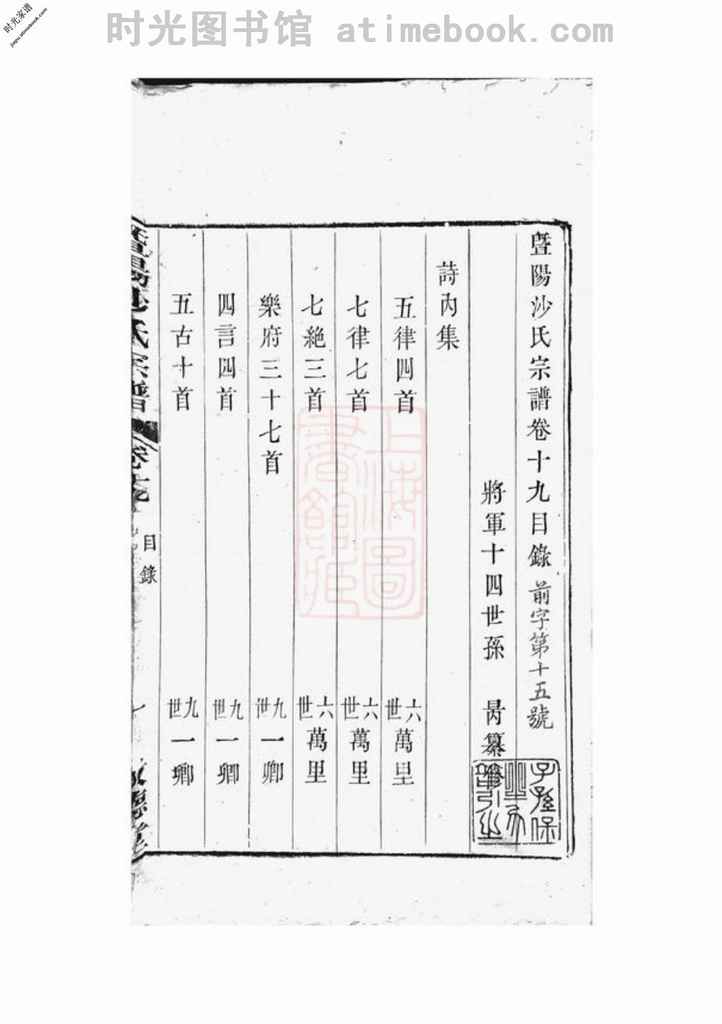 时光图书馆 atimebook.com
时光家谱
jiapu.atimebook.com
暨陽沙氏宗譜卷十九目錄 前字第十五號
將軍十四世孫 昺纂
詩內集
五律四首 六世萬里
七律七首 六世萬里
七絕三首 六世萬里
樂府三十七首 九世一卿
四言四首 九世一卿
五古十首 九世一卿
暨陽沙氏宗譜 卷十九 目錄 一
上海圖書館藏